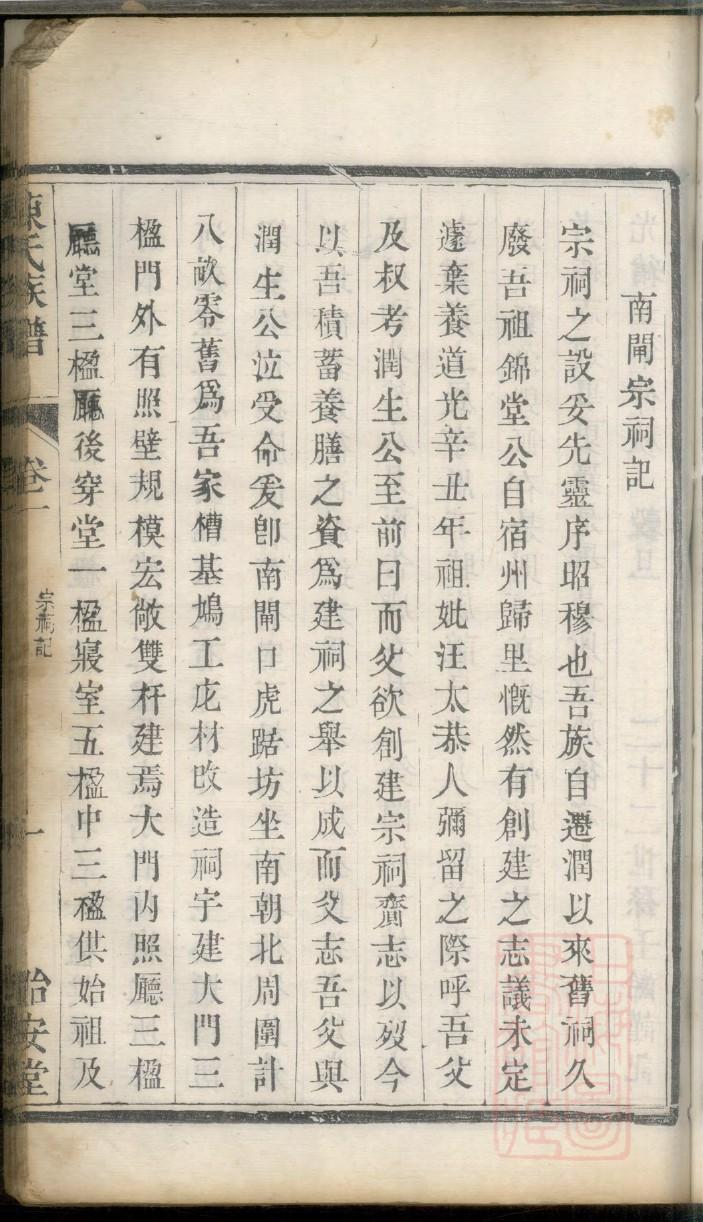 南閘宗祠記
宗祠之設妥先靈序昭穆也吾族自遷潤以來舊祠久
廢吾祖錦堂公自宿州歸里慨然有創建之志議未定
遽棄養道光辛丑年祖妣汪太恭人彌留之際呼吾父
及叔考潤生公至前曰而父欲創建宗祠齎志以歿今
以吾積蓄養膳之資爲建祠之舉以成而父志吾父與
潤生公泣受命爰卽南閘口虎踞坊坐南朝北周圍計
八畝零舊爲吾家槽基鳩工庀材改造祠宇建大門三
楹門外有照壁規模宏敞雙杆建焉大門內照廳三楹
廳堂三楹廳後穿堂一楹寢室五楹中三楹供始祖及
陳氏族譜
卷一
宗祠記
一
怡安堂